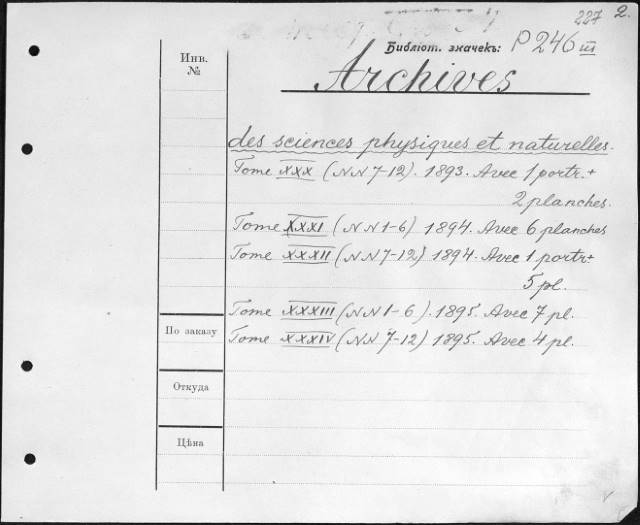 227 2.
Библіот. значекъ: P 246 III
Инв.
№
Archives
des sciences physiques et naturelles.
Tome XXX (NN 7-12). 1893. Avec 1 portr. +
2 planches.
Tome XXXI (NN 1-6) 1894. Avec 6 planches
Tome XXXII (NN 7-12) 1894. Avec 1 portr. +
5 pl.
Tome XXXIII (NN 1-6). 1895. Avec 7 pl.
По заказу
Tome XXXIV (NN 7-12) 1895. Avec 4 pl.
Откуда
Цѣна